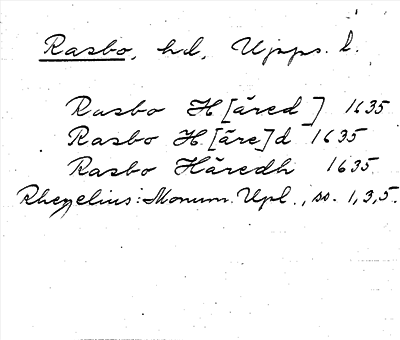 Rasbo, hd, Upps. l.
Rasbo H[äred] 1635
Rasbo H.[äre]d 1635
Rasbo Häredh 1635
Rhezelius: Monum. Upl., ss. 1, 3, 5.